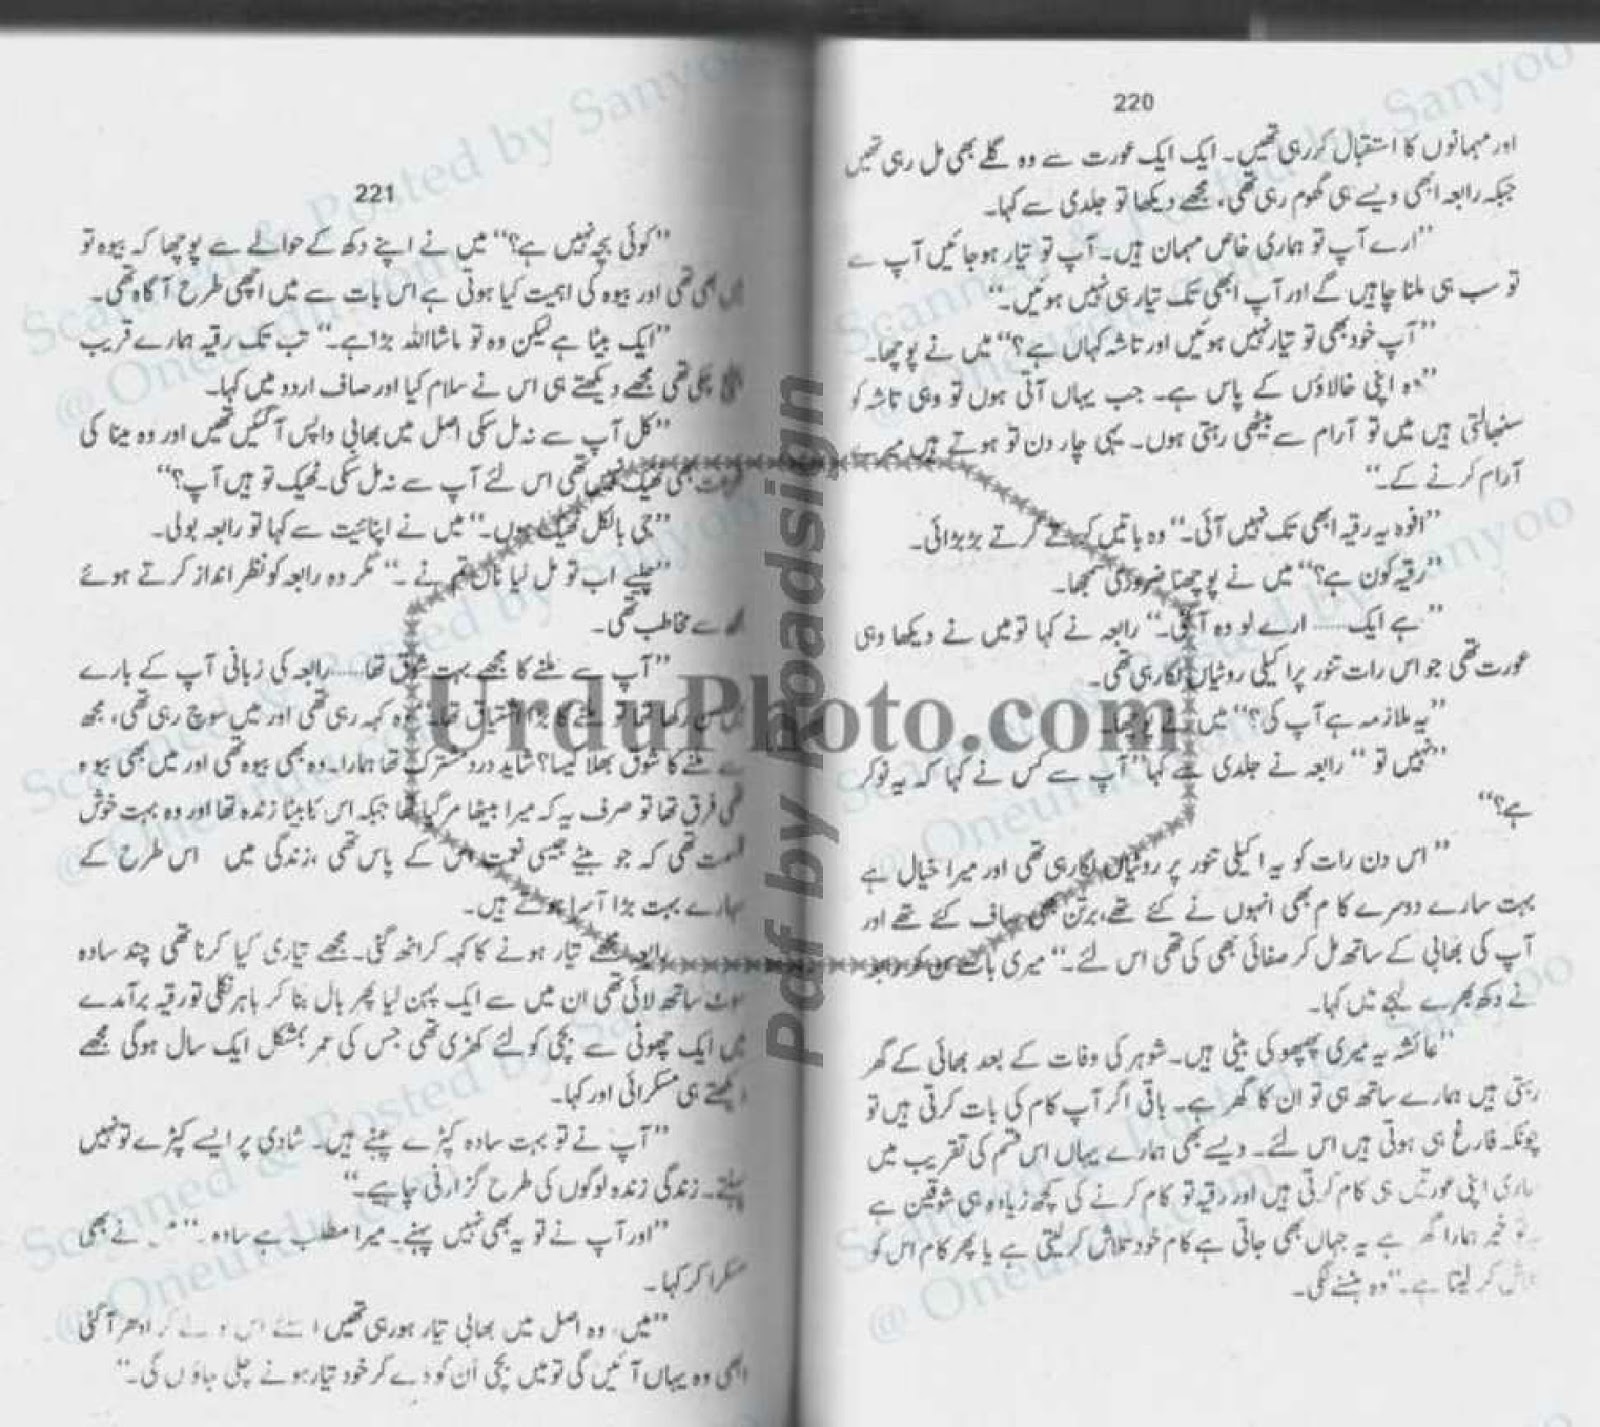 220
اور مہمانوں کا استقبال کر رہی تھیں۔ ایک ایک عورت سے وہ گلے بھی مل رہی تھیں
جبکہ رابعہ ابھی ویسے ہی گھوم رہی تھی، مجھے دیکھا تو جلدی سے کہا۔
”ارے آپ تو ہماری خاص مہمان ہیں۔ آپ تو تیار ہو جائیں آپ سے
تو سب ہی ملنا چاہیں گے اور آپ ابھی تک تیار ہی نہیں ہوئیں۔“
”آپ خود بھی تو تیار نہیں ہوئیں اور تاشہ کہاں ہے؟“ میں نے پوچھا۔
”وہ اپنی خالاؤں کے پاس ہے۔ جب یہاں آتی ہوں تو وہی تاشہ کو
سنبھالتی ہیں میں تو آرام سے بیٹھی رہتی ہوں۔ یہی چار دن تو ہوتے ہیں میرے
آرام کرنے کے۔“
”افوہ یہ رقیہ ابھی تک نہیں آئی۔“ وہ باتیں کرتے کرتے بڑبڑائی۔
”رقیہ کون ہے؟“ میں نے پوچھنا ضروری سمجھا۔
”ہے ایک...... ارے لو وہ آ گئی۔“ رابعہ نے کہا تو میں نے دیکھا وہی
عورت تھی جو اس رات تنور پر اکیلی روٹیاں لگا رہی تھی۔
”یہ ملازمہ ہے آپ کی؟“ میں نے پوچھا۔
”نہیں تو“ رابعہ نے جلدی سے کہا ”آپ سے کس نے کہا کہ یہ نوکر
ہے؟“
”اس دن رات کو یہ اکیلی تنور پر روٹیاں لگا رہی تھی اور میرا خیال ہے
بہت سارے دوسرے کام بھی انہوں نے کئے تھے، برتن بھی صاف کئے تھے اور
آپ کی بھابی کے ساتھ مل کر صفائی بھی کی تھی اس لئے۔“ میری بات سن کر رابعہ
نے دکھ بھرے لہجے میں کہا۔
”عائشہ یہ میری پھپھو کی بیٹی ہیں۔ شوہر کی وفات کے بعد بھائی کے گھر
رہتی ہیں ہمارے ساتھ ہی تو ان کا گھر ہے۔ باقی اگر آپ کام کی بات کرتی ہیں تو
چونکہ فارغ ہی ہوتی ہیں اس لئے۔ ویسے بھی ہمارے یہاں اس قسم کی تقریب میں
ساری اپنی عورتیں ہی کام کرتی ہیں اور رقیہ تو کام کرنے کی کچھ زیادہ ہی شوقین ہے
خیر ہمارا گھر ہے یہ جہاں بھی جاتی ہے کام خود تلاش کر لیتی ہے یا پھر کام اس کو
تلاش کر لیتا ہے۔“ وہ ہنسنے لگی۔
221
”کوئی بچہ نہیں ہے؟“ میں نے اپنے دکھ کے حوالے سے پوچھا کہ بیوہ تو
میں بھی تھی اور بیوہ کی اہمیت کیا ہوتی ہے اس بات سے میں اچھی طرح آگاہ تھی۔
”ایک بیٹا ہے لیکن وہ تو ماشااللہ بڑا ہے۔“ تب تک رقیہ ہمارے قریب
پہنچ چکی تھی مجھے دیکھتے ہی اس نے سلام کیا اور صاف اردو میں کہا۔
”کل آپ سے نہ مل سکی اصل میں بھابی واپس آ گئیں تھیں اور وہ مینا کی
بھی ٹھیک نہیں تھی اس لئے آپ سے نہ مل سکی۔ ٹھیک تو ہیں آپ؟“
”جی بالکل ٹھیک ہوں۔“ میں نے اپنائیت سے کہا تو رابعہ بولی۔
”چلیے اب تو مل لیا ناں تم نے۔“ مگر وہ رابعہ کو نظر انداز کرتے ہوئے
مجھ سے مخاطب تھی۔
”آپ سے ملنے کا مجھے بہت شوق تھا...... رابعہ کی زبانی آپ کے بارے
میں سن رکھا تھا تو ملنے کا بڑا اشتیاق تھا۔“ وہ کہہ رہی تھی اور میں سوچ رہی تھی، مجھ
سے ملنے کا شوق بھلا کیسا؟ شاید درد مشترک تھا ہمارا۔ وہ بھی بیوہ تھی اور میں بھی بیوہ
تھی فرق تھا تو صرف یہ کہ میرا بیٹھا مر گیا تھا جبکہ اس کا بیٹا زندہ تھا اور وہ بہت خوش
قسمت تھی کہ جو بیٹے جیسی نعمت اس کے پاس تھی، زندگی میں اس طرح کے
سہارے بہت بڑا آسرا ہوتے ہیں۔
رابعہ مجھے تیار ہونے کا کہہ کر اٹھ گئی۔ مجھے تیاری کیا کرنا تھی چند سادہ
سوٹ ساتھ لائی تھی ان میں سے ایک پہن لیا پھر بال بنا کر باہر نکلی تو رقیہ برآمدے
میں ایک چھوٹی سے بچی کو لئے کھڑی تھی جس کی عمر بمشکل ایک سال ہوگی مجھے
دیکھتے ہی مسکرائی اور کہا۔
”آپ نے تو بہت سادہ کپڑے پہنے ہیں۔ شادی پر ایسے کپڑے تو نہیں
پہنتے۔ زندگی زندہ لوگوں کی طرح گزارنی چاہیے۔“
”اور آپ نے تو یہ بھی نہیں پہنے۔ میرا مطلب ہے سادہ۔“ میں نے بھی
مسکرا کر کہا۔
”میں، وہ اصل میں بھابی تیار ہو رہی تھیں ادھر آ گئی
ابھی وہ یہاں آئیں گی تو میں بچی ان کو دے کر خود تیار ہونے چلی جاؤں گی۔“
UrduPhoto.com
Pdf by Roadsign
Scanned & Posted by Sanyoo
@ Oneurdu.com